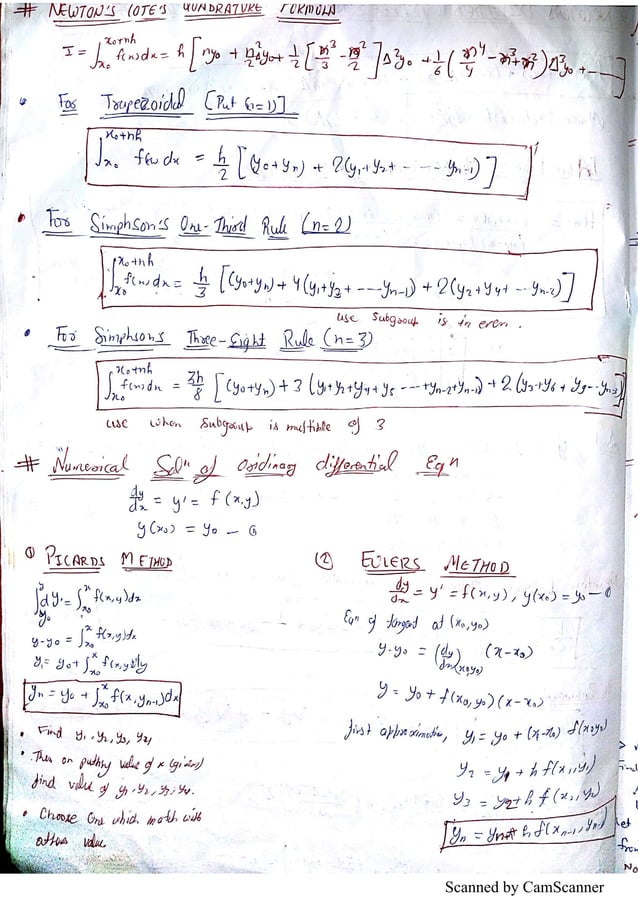 # NEWTON'S COTE'S QUADRATURE FORMULA
I = ∫_{x0}^{x0+nh} f(x)dx = h [ ny0 + n²/2 Δy0 + 1/2 [ n³/3 - n²/2 ] Δ²y0 + 1/6 ( n⁴/4 - n³ + n² ) Δ³y0 + ---- ]
• For Trapezoidal [Put n=1]
∫_{x0}^{x0+nh} f(x) dx = h/2 [ (y0+yn) + 2(y1+y2+ - - - - yn-1) ]
• For Simphson's One-Third Rule (n=2)
∫_{x0}^{x0+nh} f(x)dx = h/3 [ (y0+yn) + 4(y1+y3+ ---yn-1) + 2(y2+y4+ --- yn-2) ]
use Subgroup is in even.
• For Simphson's Three-Eight Rule (n=3)
∫_{x0}^{x0+nh} f(x)dx = 3h/8 [ (y0+yn) + 3 (y1+y2+y4+y5 ---+yn-2+yn-1) + 2 (y3+y6+ y9--yn-3)]
use when Subgroup is multiple of 3
# Numerical Solⁿ of Ordinary differential Eqⁿ
dy/dx = y' = f(x,y)
y(x0) = y0 —
① PICARDS METHOD
∫_{y0}^{y} dy = ∫_{x0}^{x} f(x,y)dx
y-y0 = ∫_{x0}^{x} f(x,y)dx
y1 = y0 + ∫_{x0}^{x} f(x,y0)dy
yn = y0 + ∫_{x0}^{x} f(x, yn-1)dx
• Find y1, y2, y3, y4
• Then on putting value of x (given)
find value of y1, y2, y3, y4.
• Choose One which match with
others value
② EULERS METHOD
dy/dx = y' = f(x,y), y(x0) = y0 —
Eqⁿ of tangent at (x0,y0)
y-y0 = (dy/dx)(x0,y0) (x-x0)
y = y0 + f(x0,y0)(x-x0)
first approximation, y1 = y0 + (x1-x0) f(x0,y0)
y2 = y1 + h f(x1,y1)
y3 = y2 + h f(x2,y2)
yn = h f(xn-1, yn)
Scanned by CamScanner